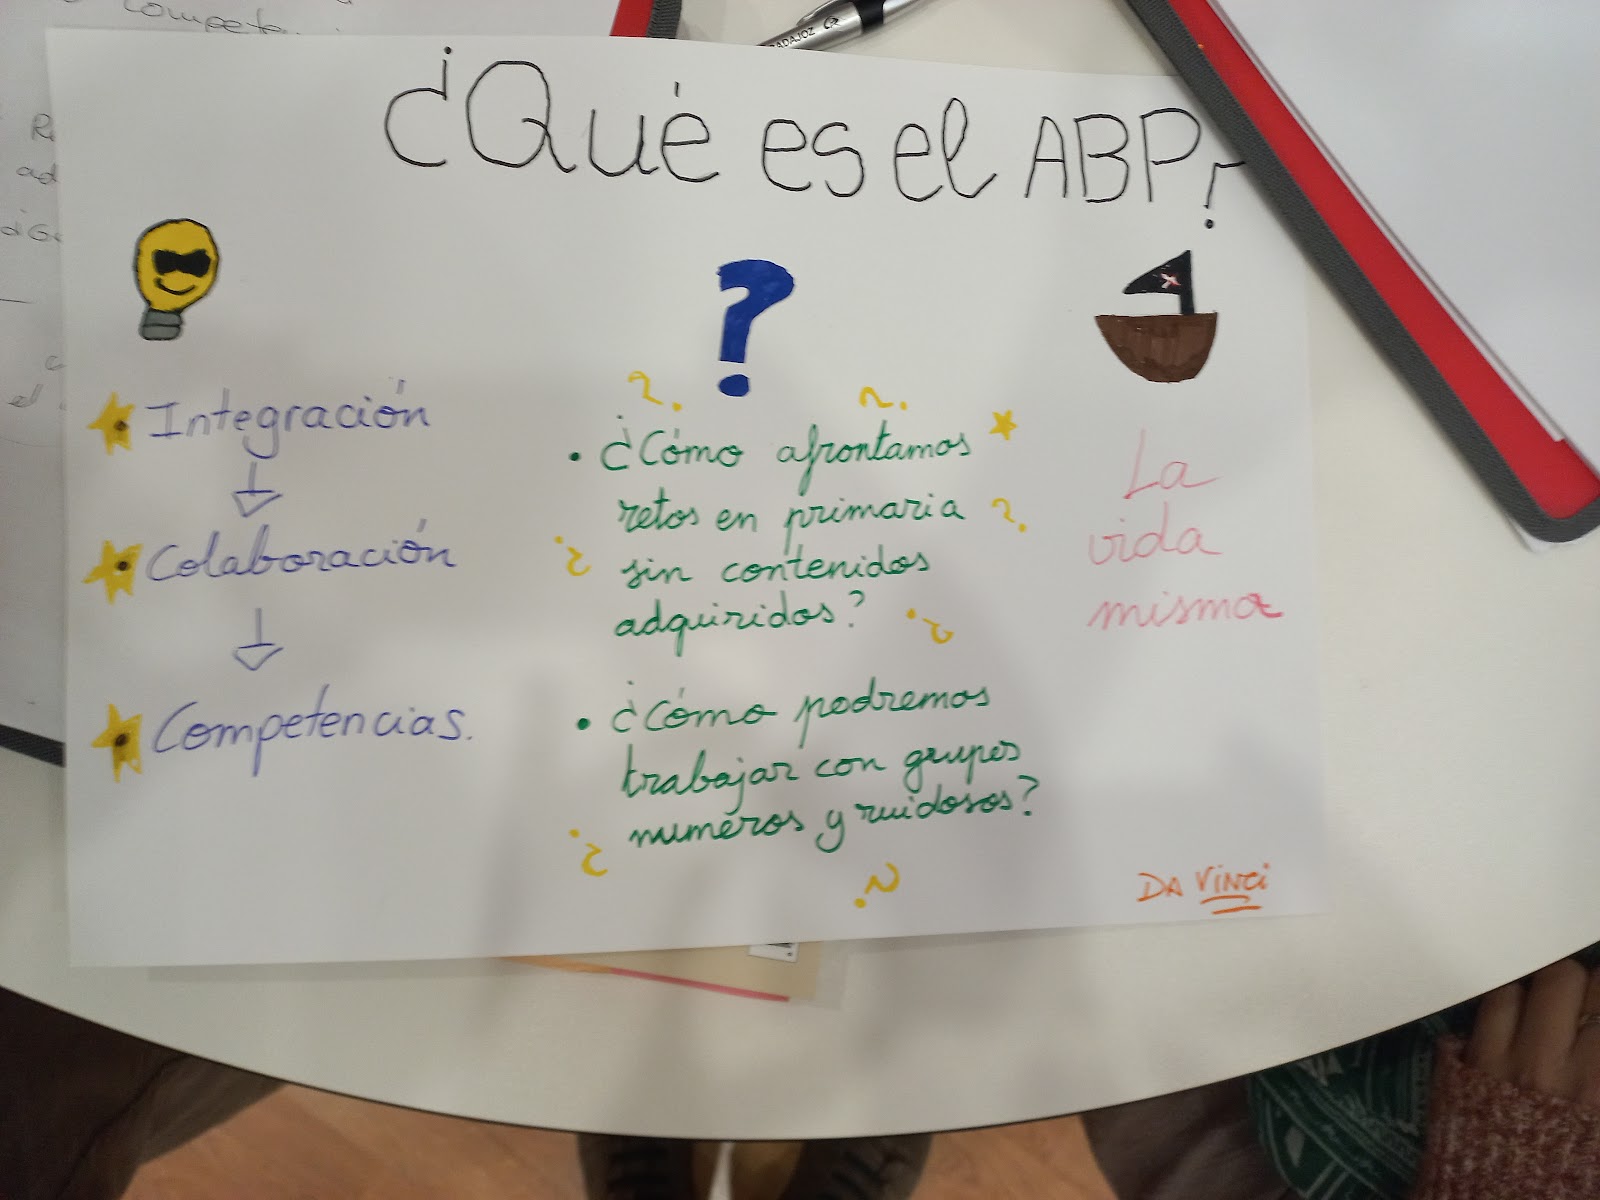 Competenci
ADAJOZ
¿Qué es el ABP?
Integración
Colaboración
Competencias.
• ¿Cómo afrontamos
retos en primaria
sin contenidos
adquiridos?
• ¿Cómo podremos
trabajar con grupos
numeros y ruidosos?
La
vida
misma
DA VINCI